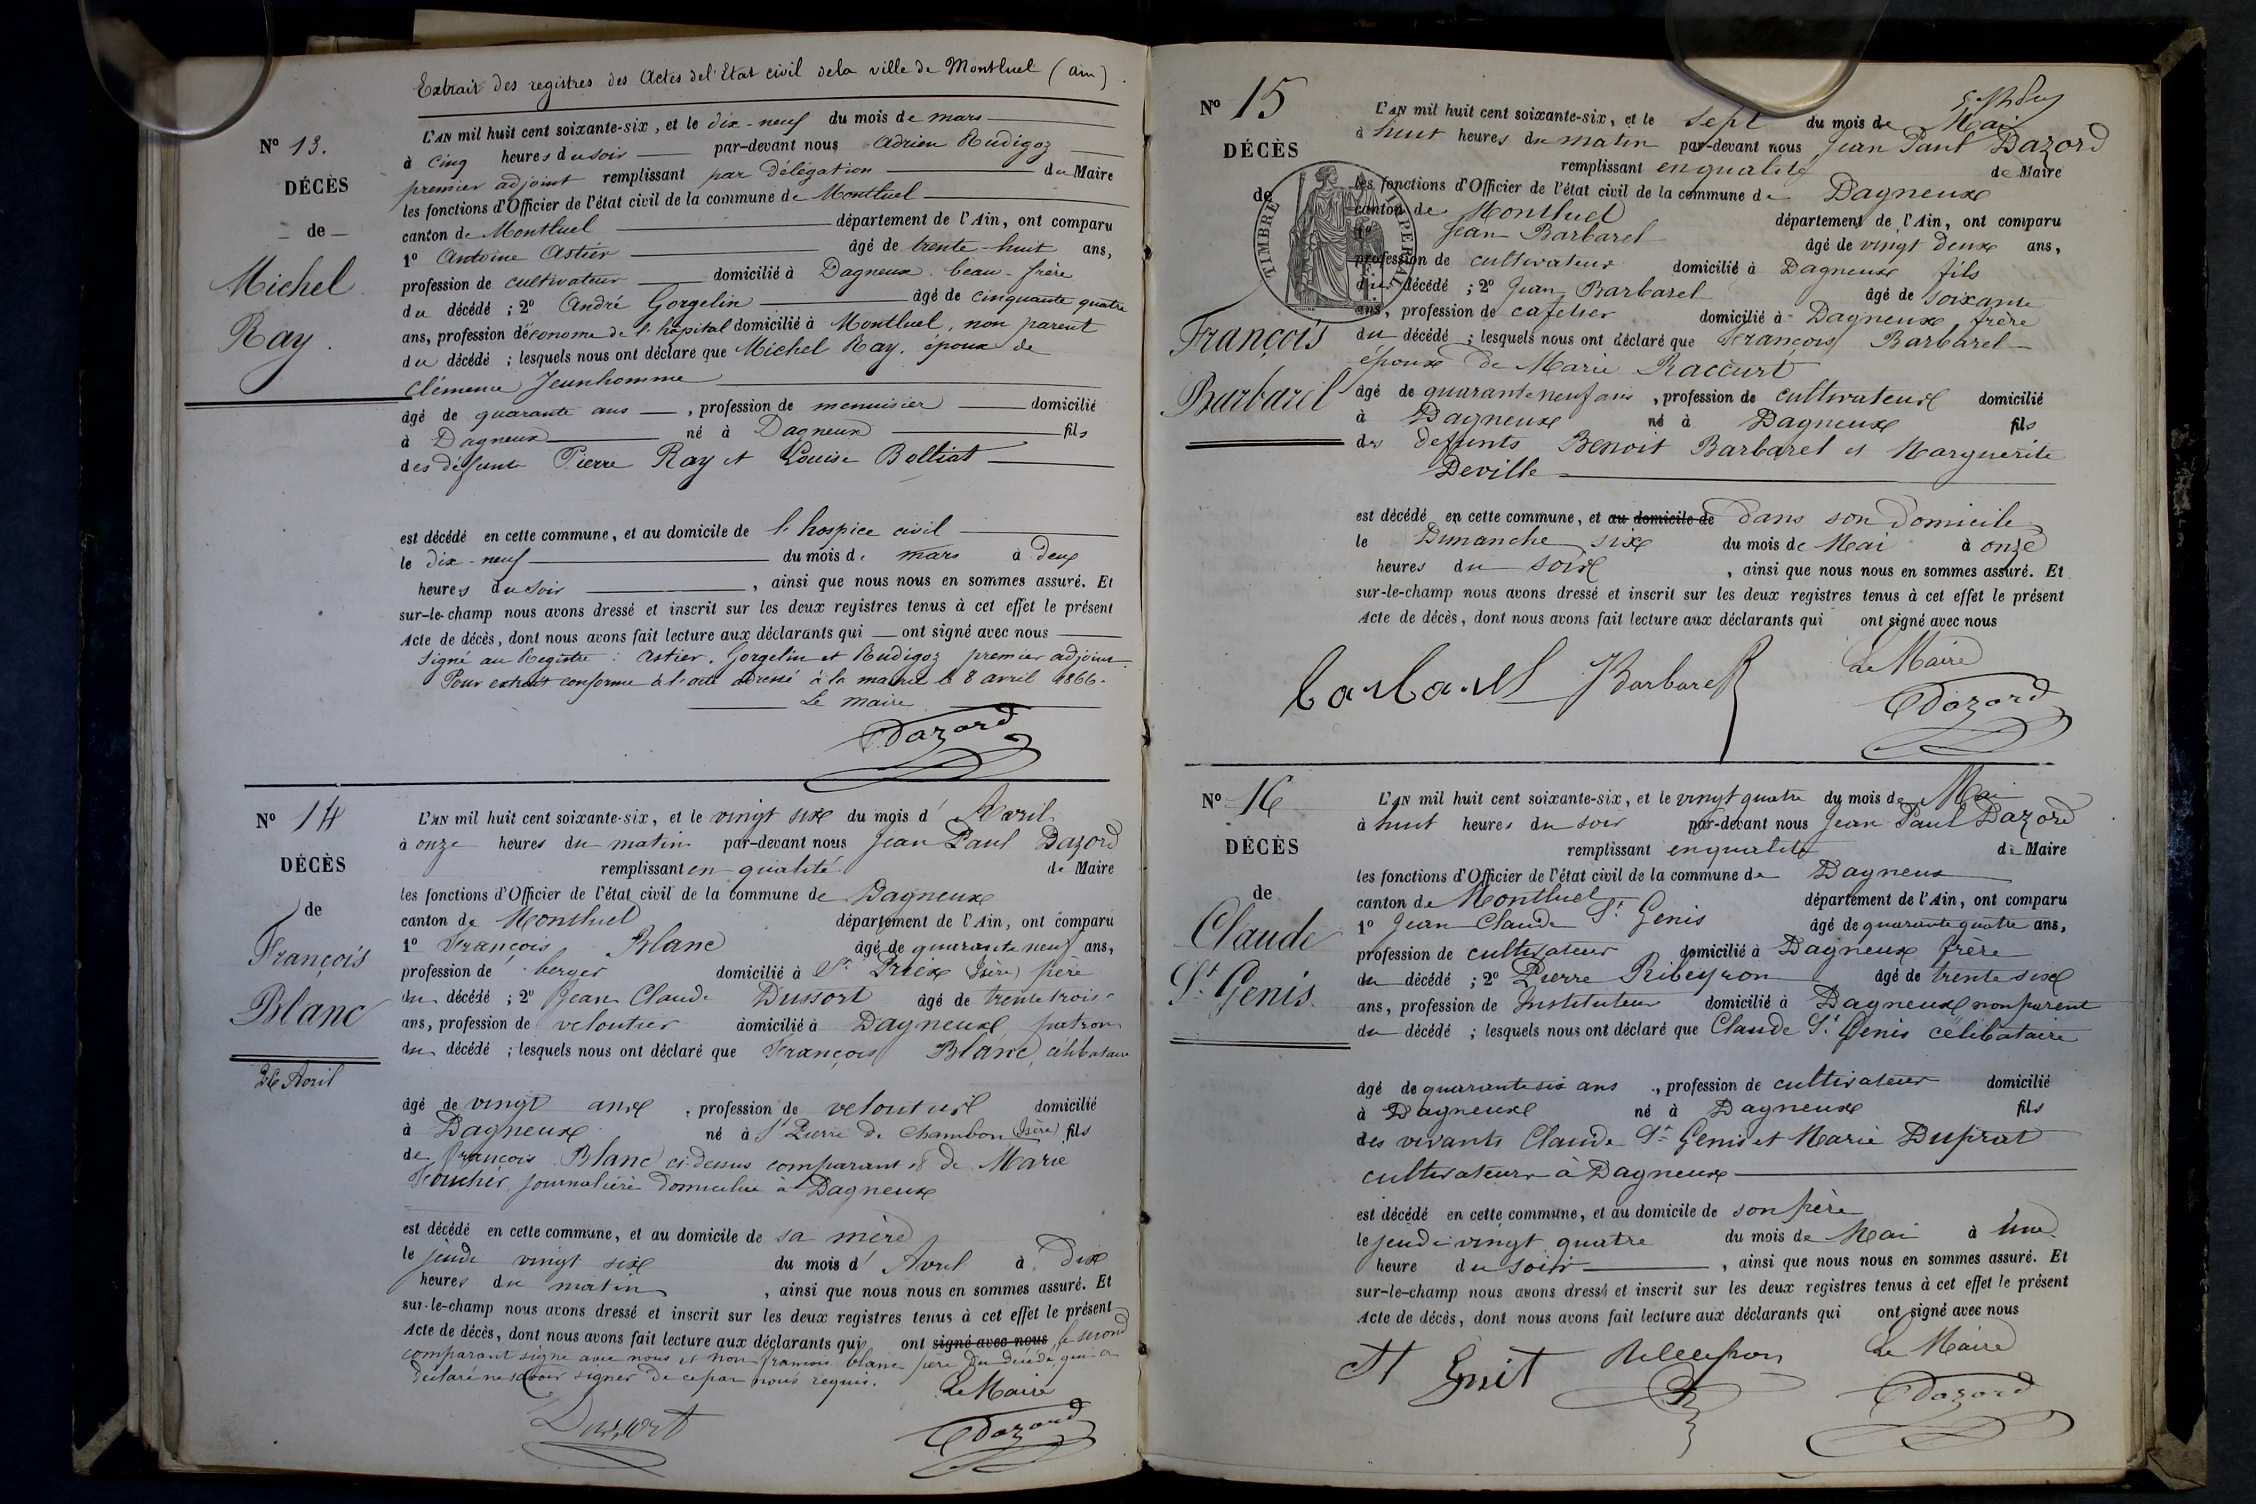 Extrait des registres des Actes de l'Etat civil de la ville de Montluel (ain).
Nº 13.
DÉCÈS
de
Michel
Ray.
L'AN mil huit cent soixante-six, et le dix-neuf du mois de mars
à cinq heures du soir par-devant nous Adrien Rudigoz
premier adjoint remplissant par délégation du Maire
les fonctions d'Officier de l'état civil de la commune de Montluel
canton de Montluel département de l'Ain, ont comparu
1º Antoine Astier âgé de trente-huit ans,
profession de cultivateur domicilié à Dagneux beau-frère
du décédé ; 2º André Gorgelin âgé de cinquante quatre
ans, profession d'économe de l'hôpital domicilié à Montluel, non parent
du décédé ; lesquels nous ont déclaré que Michel Ray, époux de
Clémence Jeunhomme
âgé de quarante ans, profession de menuisier domicilié
à Dagneux né à Dagneux fils
des défunts Pierre Ray et Louise Bolliat
est décédé en cette commune, et au domicile de l'hospice civil
le dix-neuf du mois de mars à deux
heures du soir, ainsi que nous nous en sommes assuré. Et
sur-le-champ nous avons dressé et inscrit sur les deux registres tenus à cet effet le présent
Acte de décès, dont nous avons fait lecture aux déclarants qui ont signé avec nous
Signé au Registre : Astier, Gorgelin et Rudigoz premier adjoint.
Pour extrait conforme à l'acte adressé à la mairie le 8 avril 1866.
Le maire
Dazord
Nº 14
DÉCÈS
de
François
Blanc
26 Avril
L'AN mil huit cent soixante-six, et le vingt six du mois d'Avril
à onze heures du matin par-devant nous Jean Paul Dazord
remplissant en qualité de Maire
les fonctions d'Officier de l'état civil de la commune de Dagneux
canton de Montluel département de l'Ain, ont comparu
1º François Blanc âgé de quarante neuf ans,
profession de berger domicilié à St Prieix (Isère) père
du décédé ; 2º Jean Claude Dussort âgé de trente trois
ans, profession de veloutier domicilié à Dagneux patron
du décédé ; lesquels nous ont déclaré que François Blanc, célibataire
âgé de vingt ans, profession de veloutier domicilié
à Dagneux né à St Pierre de Chambon (Isère) fils
de françois Blanc ci-dessus comparant et de Marie
journalière domiciliée à Dagneux
est décédé en cette commune, et au domicile de sa mère
le jeudi vingt six du mois d'Avril à Dix
heures du matin, ainsi que nous nous en sommes assuré. Et
sur-le-champ nous avons dressé et inscrit sur les deux registres tenus à cet effet le présent
Acte de décès, dont nous avons fait lecture aux déclarants qui ont signé avec nous le second
comparant signé avec nous et non françois blanc père du décédé qui a
déclaré ne savoir signer de ce par nous requis.
Le Maire
Dussort Dazord
Nº 15
DÉCÈS
de
TIMBRE IMPERIAL
François
Barbarel
L'AN mil huit cent soixante-six, et le Sept du mois de Mai
à huit heures du matin par-devant nous Jean Paul Dazord
remplissant en qualité de Maire
les fonctions d'Officier de l'état civil de la commune de Dagneux
canton de Montluel département de l'Ain, ont comparu
1º Jean Barbarel âgé de vingt deux ans,
profession de cultivateur domicilié à Dagneux fils
du décédé ; 2º Jean Barbarel âgé de soixante
ans, profession de cafetier domicilié à Dagneux frère
du décédé ; lesquels nous ont déclaré que François Barbarel
époux de Marie Raccurt
âgé de quarante neuf ans, profession de cultivateur domicilié
à Dagneux né à Dagneux fils
des deffunts Benoit Barbarel et Marguerite
Deville
est décédé en cette commune, et au domicile de dans son domicile
le Dimanche six du mois de Mai à onze
heures du soir, ainsi que nous nous en sommes assuré. Et
sur-le-champ nous avons dressé et inscrit sur les deux registres tenus à cet effet le présent
Acte de décès, dont nous avons fait lecture aux déclarants qui ont signé avec nous
Le Maire
barbarel Barbarel Dazord
Nº 16
DÉCÈS
de
Claude
St Genis.
L'AN mil huit cent soixante-six, et le vingt quatre du mois de Mai
à huit heures du soir par-devant nous Jean Paul Dazord
remplissant en qualité de Maire
les fonctions d'Officier de l'état civil de la commune de Dagneux
canton de Montluel département de l'Ain, ont comparu
1º Jean Claude St Genis âgé de quarante quatre ans,
profession de cultivateur domicilié à Dagneux frère
du décédé ; 2º Pierre Ribeyron âgé de trente six
ans, profession de Instituteur domicilié à Dagneux non parent
du décédé ; lesquels nous ont déclaré que Claude St Genis célibataire
âgé de quarante six ans, profession de cultivateur domicilié
à Dagneux né à Dagneux fils
des vivants Claude St Genis et Marie Duprat
cultivateurs à Dagneux
est décédé en cette commune, et au domicile de son père
le jeudi vingt quatre du mois de Mai à une
heure du soir, ainsi que nous nous en sommes assuré. Et
sur-le-champ nous avons dressé et inscrit sur les deux registres tenus à cet effet le présent
Acte de décès, dont nous avons fait lecture aux déclarants qui ont signé avec nous
Le Maire
St Ribeyron Dazord